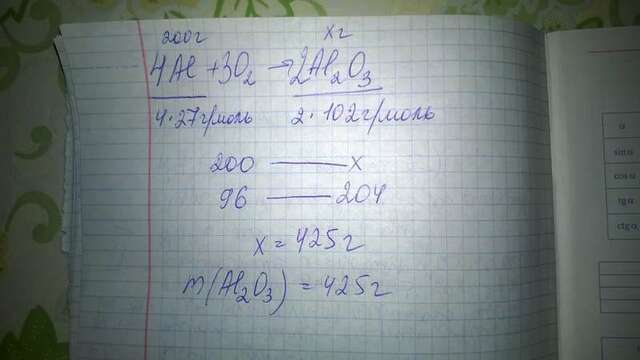 200г xг
4Al + 3O₂ → 2Al₂O₃
4·27г/моль 2·102г/моль
200 — x
96 — 204
x = 425г
m(Al₂O₃) = 425г
α
sin α
cos α
tg α
ctg α